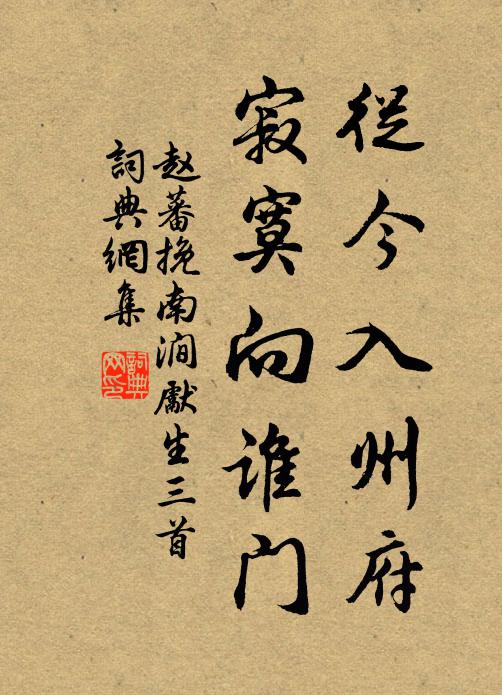 從今入州府
寂寞向誰門
赵蕃挽南涧獻生三首
詞典網集
詞典网印